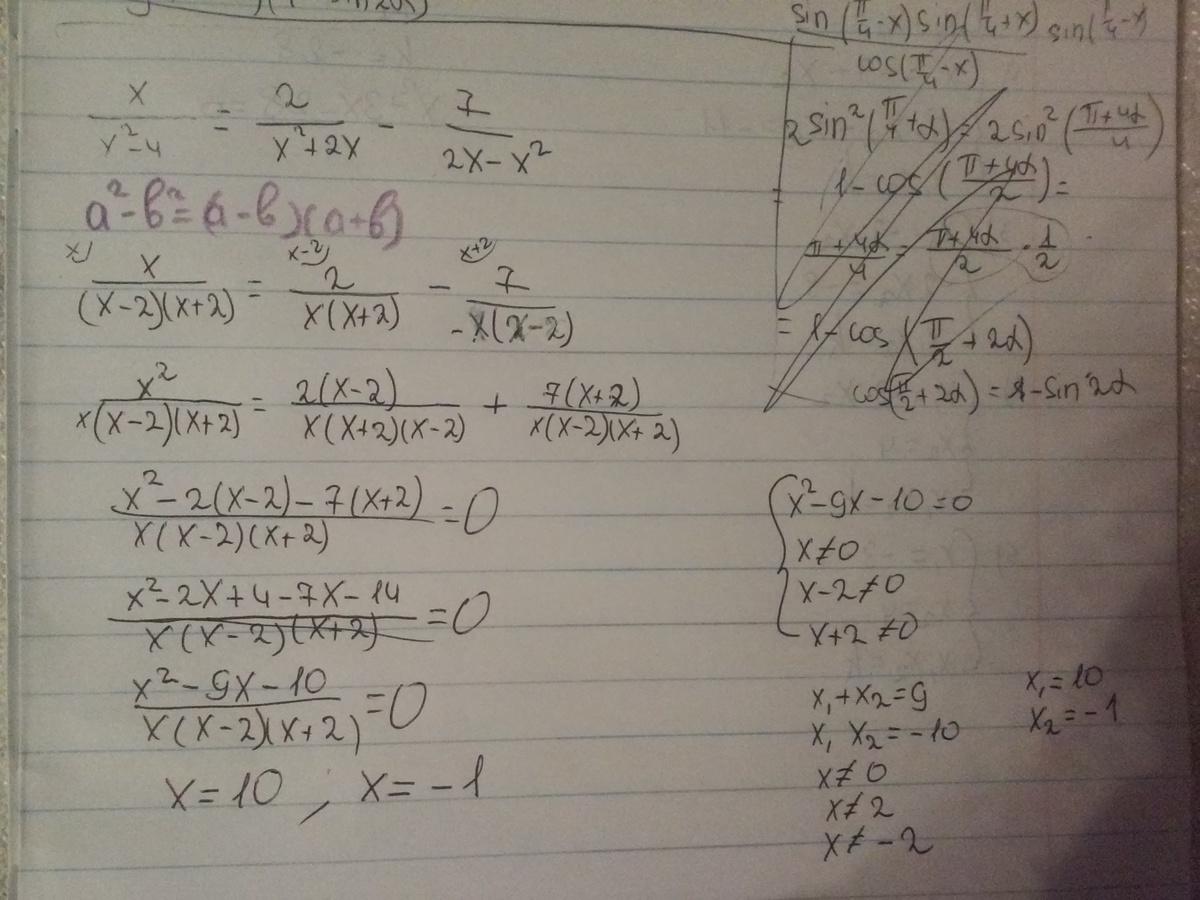 x/(x²-4) = 2/(x²+2x) - 7/(2x-x²)
a²-b²=(a-b)(a+b)
x) x-2) x+2)
x/((x-2)(x+2)) = 2/(x(x+2)) - 7/(-x(x-2))
x²/(x(x-2)(x+2)) = 2(x-2)/(x(x+2)(x-2)) + 7(x+2)/(x(x-2)(x+2))
(x²-2(x-2)-7(x+2))/(x(x-2)(x+2)) = 0
(x²-2x+4-7x-14)/(x(x-2)(x+2)) = 0
(x²-9x-10)/(x(x-2)(x+2)) = 0
x=10, x=-1
sin(π/4-x) sin(π/4+x) / cos(π/4-x) sin(π/4-x)
2sin²(π/4+α) = 2sin²((π+4α)/4)
1-cos((π+4α)/2)=
(π+4α)/4 = (π+4α)/2 · 1/2
= 1-cos(π/2+2α)
cos(π/2+2α) = 1-sin2α
x²-9x-10=0
x≠0
x-2≠0
x+2≠0
x₁+x₂=9
x₁ x₂=-10
x≠0
x≠2
x≠-2
x₁=10
x₂=-1